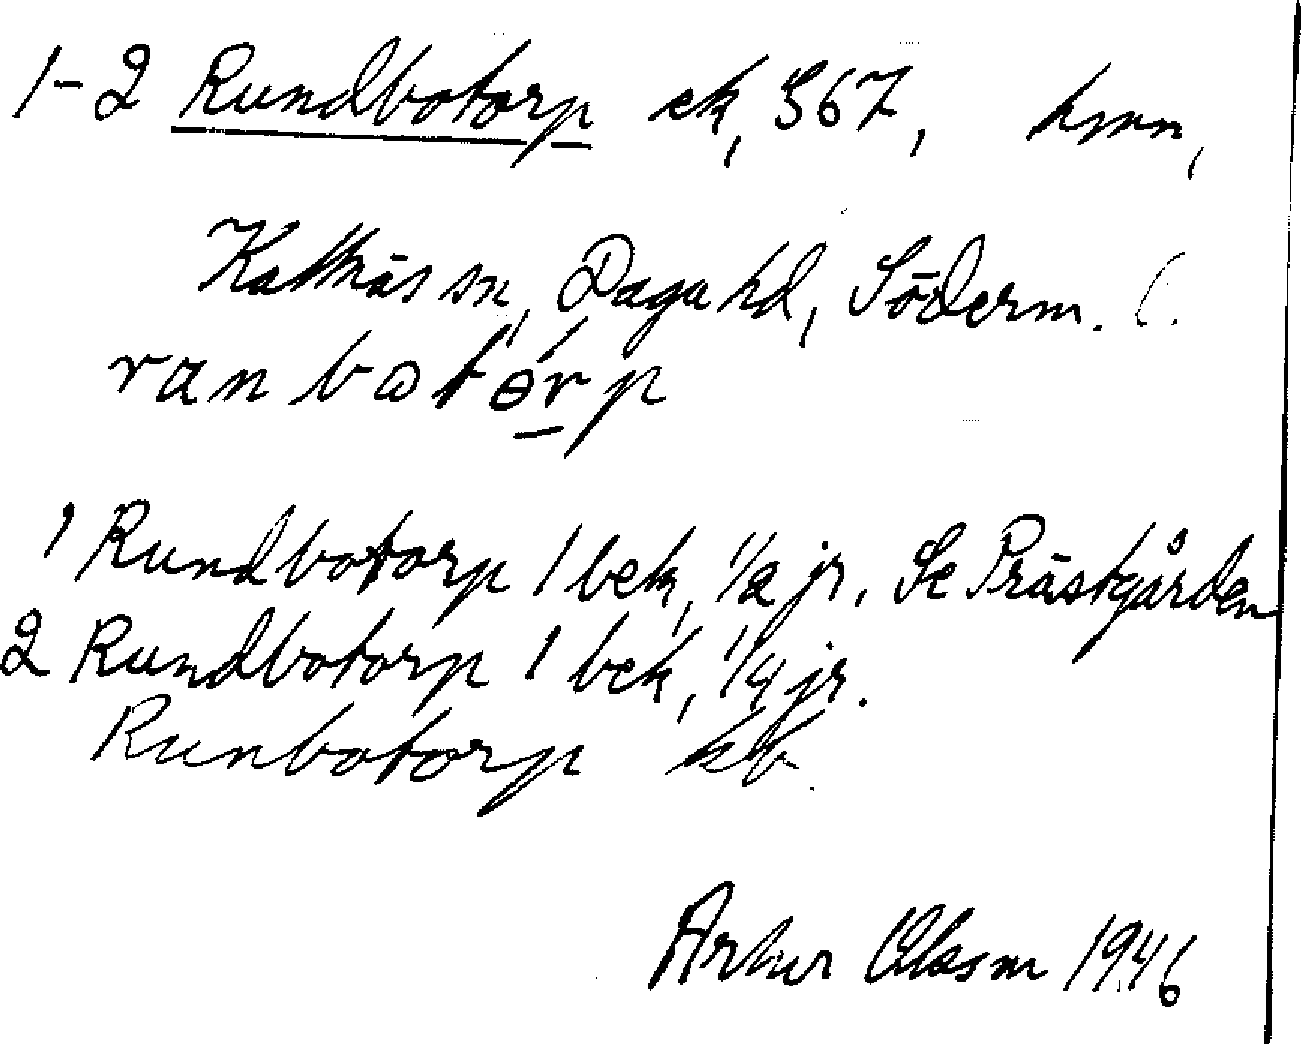 1-2 Rundbotorp ek, S67, hmn,
Kattnäs sn, Daga hd, Söderm.
ranbatɵrp
1 Rundbotorp 1 bek, 1/2 jr. Se Prästgården
2 Rundbotorp 1 bek, 1/4 jr.
Runbotorp kb.
Artur Olsson 1946